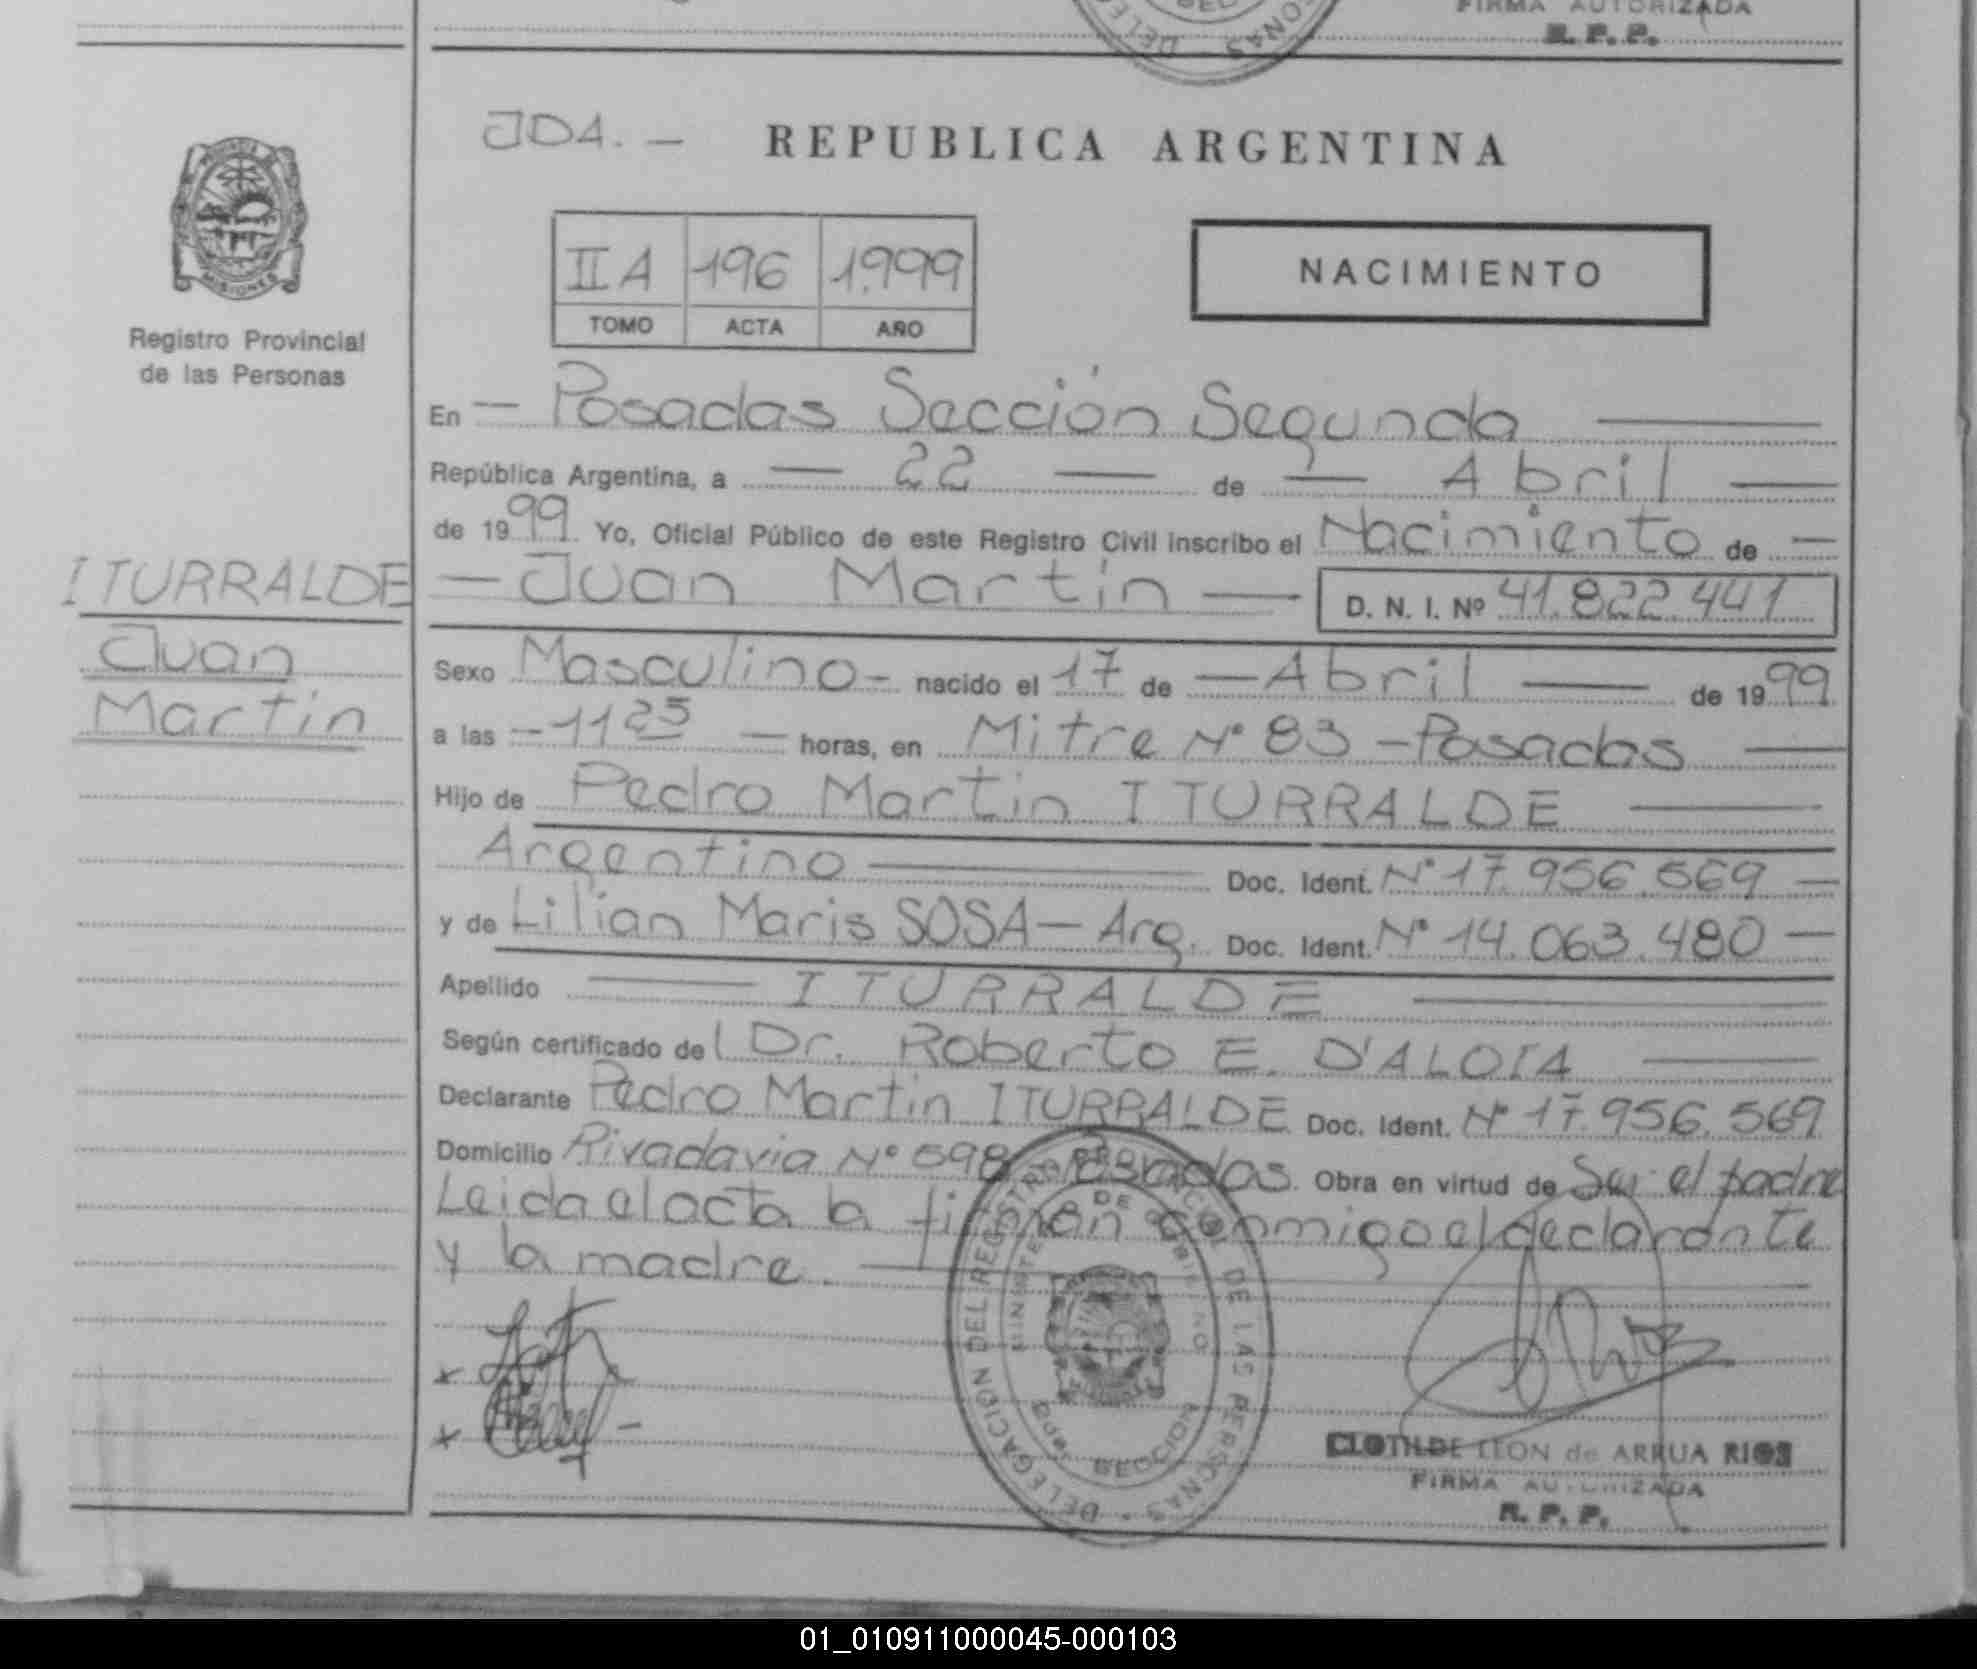 FIRMA AUTORIZADA
R. P. P.
JDA. —
REPUBLICA ARGENTINA
PROVINCIA DE
MISIONES
Registro Provincial
de las Personas
II A 196 1.999
TOMO ACTA AÑO
NACIMIENTO
En — Posadas Sección Segunda —
República Argentina, a — 22 — de — Abril —
de 1999 Yo, Oficial Público de este Registro Civil inscribo el Nacimiento de —
ITURRALDE
— Juan Martin — D. N. I. Nº 41.822.441
Juan
Martin
Sexo Masculino - nacido el 17 de — Abril — de 1999
a las - 11 25 — horas, en Mitre Nº 83 - Posadas —
Hijo de Pedro Martin ITURRALDE —
Argentino — Doc. Ident. Nº 17.956.569 —
y de Lilian Maris SOSA — Arg. Doc. Ident. Nº 14.063.480 —
Apellido — ITURRALDE —
Según certificado del Dr. Roberto E. D'ALOIA —
Declarante Pedro Martin ITURRALDE Doc. Ident. Nº 17.956.569
Domicilio Rivadavia Nº 598 Posadas. Obra en virtud de Ser el padre
Leida el acta la firman conmigo el declarante
y la madre. —
DELEGACION DEL REGISTRO PROVINCIAL DE LAS PERSONAS
MINISTERIO DE GOBIERNO
SECCION
CLOTILDE LEON de ARRUA RIOS
FIRMA AUTORIZADA
R. P. P.
01_010911000045-000103